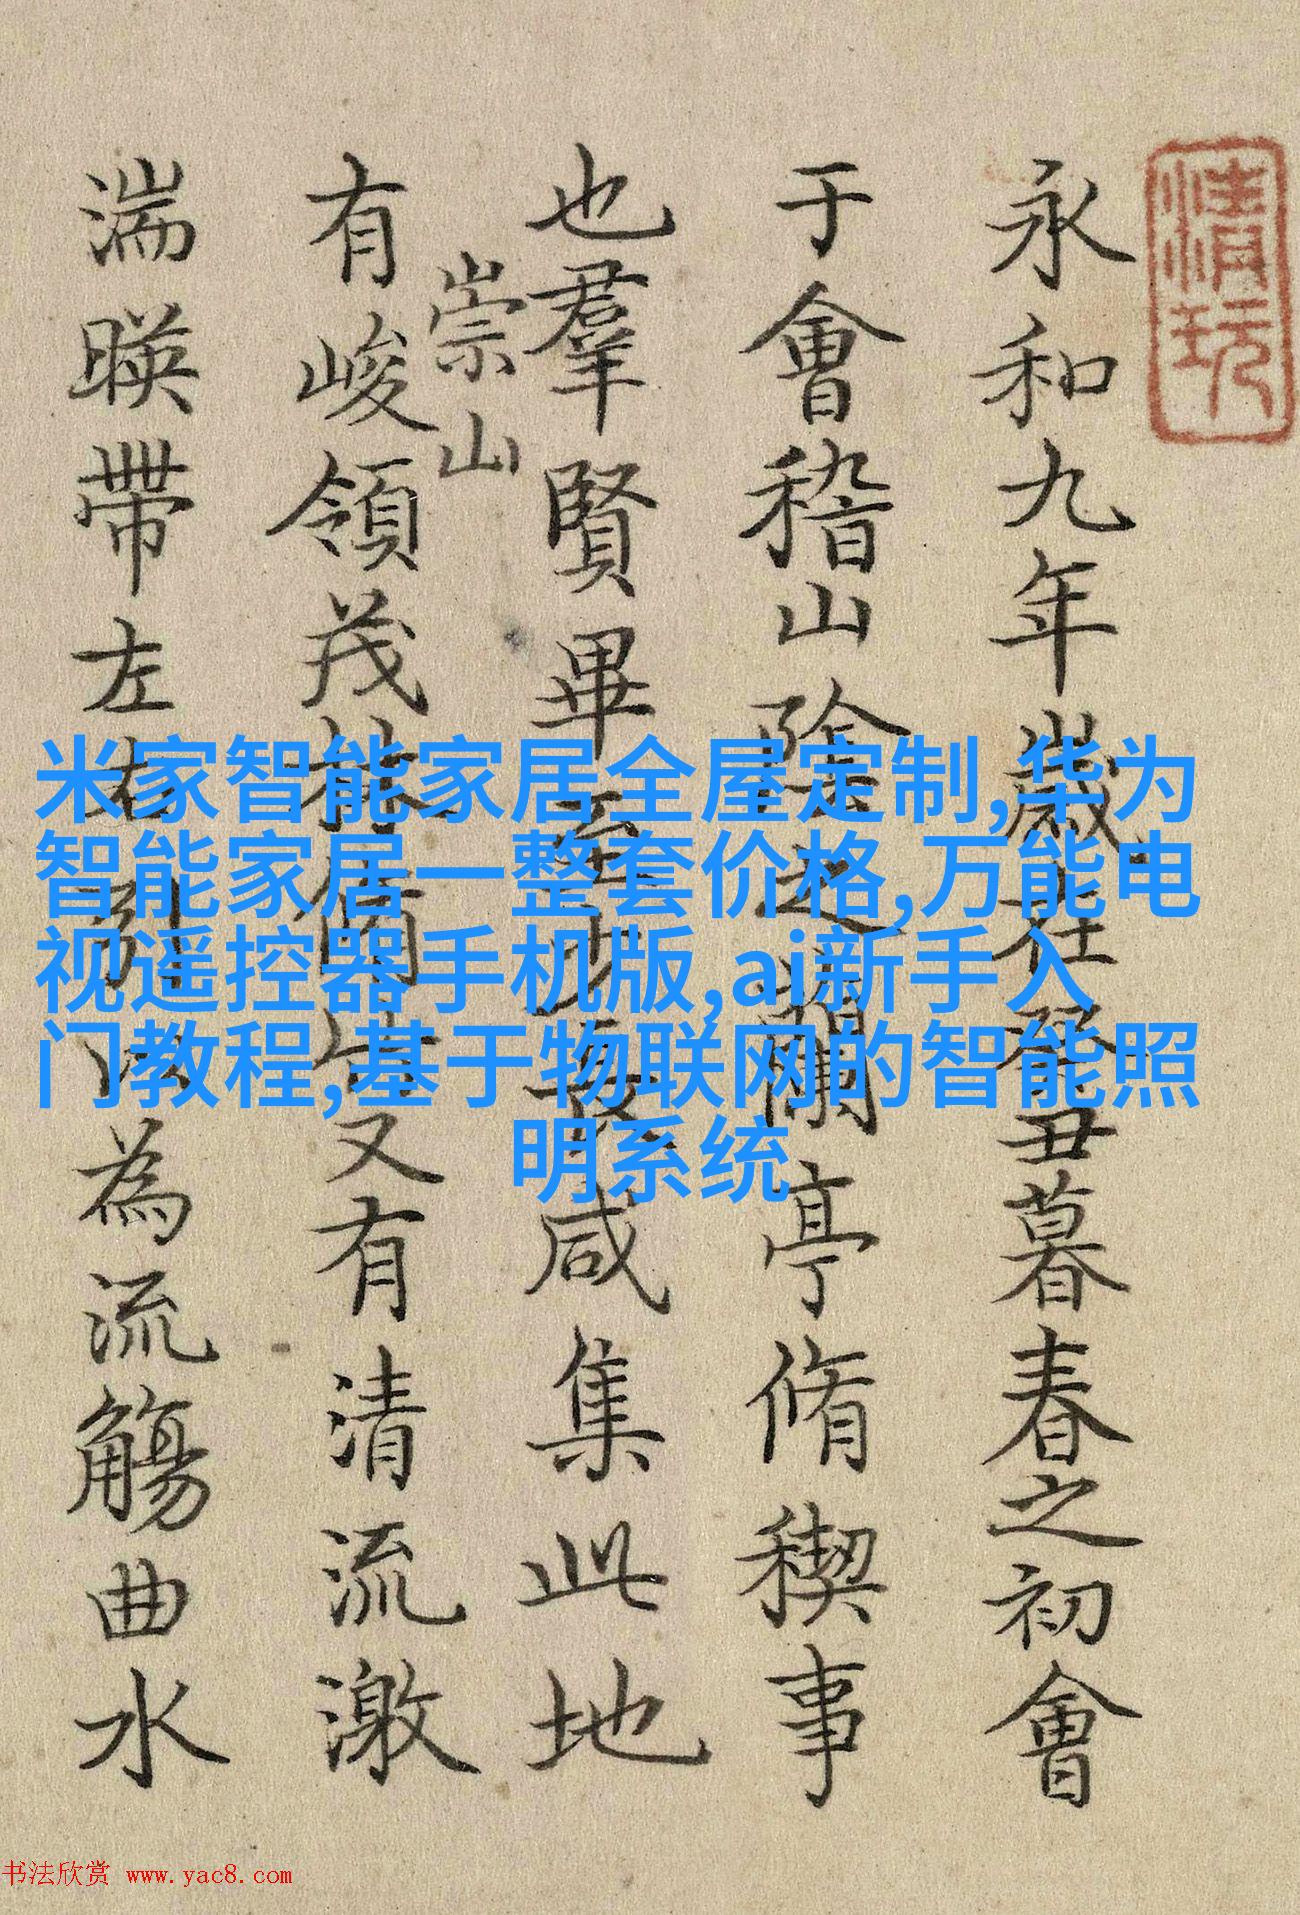 清玩
永和九年歲在癸丑暮春之初會
于會稽山陰之蘭亭脩稧事
也羣賢畢至少長咸集此地
崇山
有峻領茂林脩竹又有清流激
湍暎帶左右引以為流觴曲水
米家智能家居全屋定制,华为
智能家居一整套价格,万能电
视遥控器手机版,ai新手入
门教程,基于物联网的智能照
明系统
书法欣赏 www.yac8.com